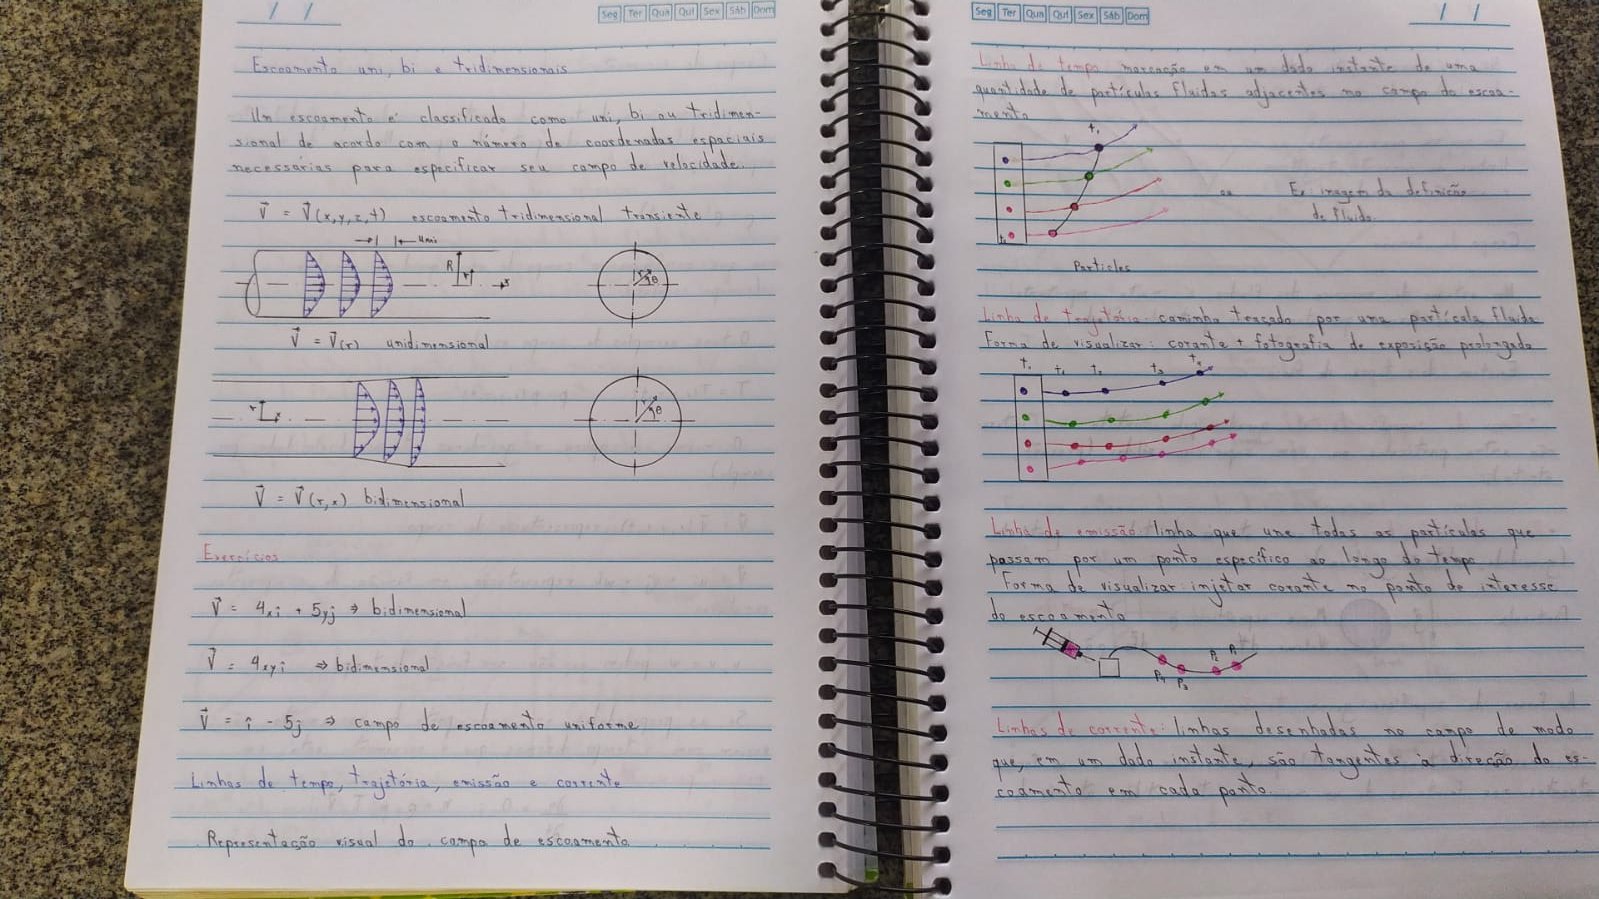 / /
Seg Ter Qua Qui Sex Sáb Dom
Escoamento uni, bi e tridimensionais
Um escoamento é classificado como uni, bi ou tridimen-
sional de acordo com o número de coordenadas espaciais
necessárias para especificar seu campo de velocidade.
V⃗ = V⃗(x,y,z,t) escoamento tridimensional transiente
R r x
r θ
V⃗ = V⃗(r) unidimensional
r x
r θ
V⃗ = V⃗(r,x) bidimensional
Exercícios
V⃗ = 4xi + 5yj ⇒ bidimensional
V⃗ = 4xyi ⇒ bidimensional
V⃗ = i - 5j ⇒ campo de escoamento uniforme
Linhas de tempo, trajetória, emissão e corrente
Representação visual do campo de escoamento
Seg Ter Qua Qui Sex Sáb Dom
/ /
Linha de tempo: marcação em um dado instante de uma
quantidade de partículas fluidas adjacentes no campo do escoa-
mento
t₁
ou Ex imagem da definição
de fluido.
t₀
Particles
Linha de trajetória: caminho traçado por uma partícula fluida
Forma de visualizar: corante + fotografia de exposição prolongada
Linha de emissão: linha que une todas as partículas que
passam por um ponto específico ao longo do tempo
Forma de visualizar: injetar corante no ponto de interesse
do escoamento
P₄ P₃ P₂ P₁
Linhas de corrente: linhas desenhadas no campo de modo
que, em um dado instante, são tangentes à direção do es-
coamento em cada ponto.